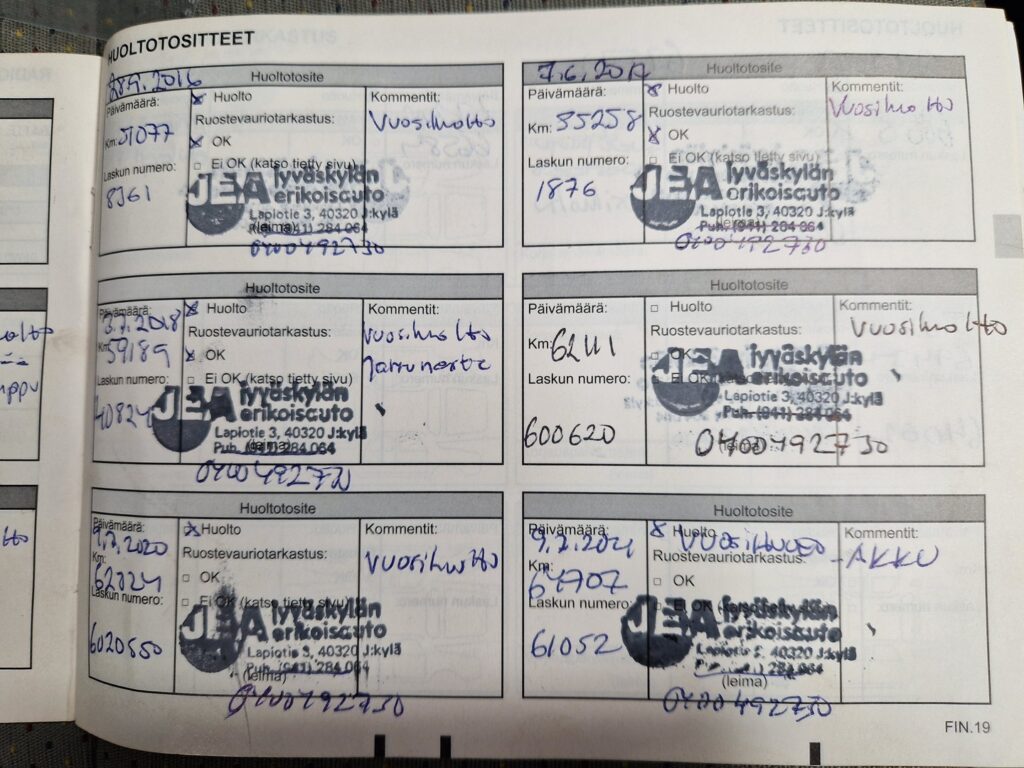 HUOLTOTOSITTEET
Huoltotosite
2016
Päivämäärä:
Huolto
Kommentit:
Vuosihuolto
Km: 51077
Ruostevauriotarkastus:
OK
Laskun numero:
Ei OK (katso tietty sivu)
8361
JEA Jyväskylän
erikoisauto
Lapiotie 3, 40320 J:kylä
Puh. (941) 284 064
(leima)
0400492730
Huoltotosite
7.6.2017
Päivämäärä:
Huolto
Kommentit:
Vuosihuolto
Km: 55258
Ruostevauriotarkastus:
OK
Laskun numero:
Ei OK (katso tietty sivu)
1876
JEA Jyväskylän
erikoisauto
Lapiotie 3, 40320 J:kylä
Puh. (941) 284 064
(leima)
0400492730
Huoltotosite
Päivämäärä:
3.7.2018
Huolto
Kommentit:
Vuosihuolto
Jarruneste
Km: 59189
Ruostevauriotarkastus:
OK
Laskun numero:
Ei OK (katso tietty sivu)
40824
JEA Jyväskylän
erikoisauto
Lapiotie 3, 40320 J:kylä
Puh. (941) 284 064
(leima)
0400492730
Huoltotosite
Päivämäärä:
Huolto
Kommentit:
Vuosihuolto
Km: 62111
Ruostevauriotarkastus:
OK
Laskun numero:
Ei OK (katso
JEA Jyväskylän
erikoisauto
Lapiotie 3, 40320 J:kylä
Puh. (941) 284 064
600620
0400492730
Huoltotosite
Päivämäärä:
9.7.2020
Huolto
Kommentit:
Vuosihuolto
Km:
62824
Ruostevauriotarkastus:
OK
Laskun numero:
Ei OK (katso tietty sivu)
6020550
JEA Jyväskylän
erikoisauto
Lapiotie 3, 40320 J:kylä
Puh. (941) 284 064
(leima)
0400492730
Huoltotosite
Päivämäärä:
9.7.2021
Huolto
Kommentit:
-AKKU
Km:
64707
Ruostevauriotarkastus:
OK
Laskun numero:
Ei OK (katso
61052
JEA Jyväskylän
erikoisauto
Lapiotie 3, 40320 J:kylä
284 064
(leima)
0400492730
FIN.19